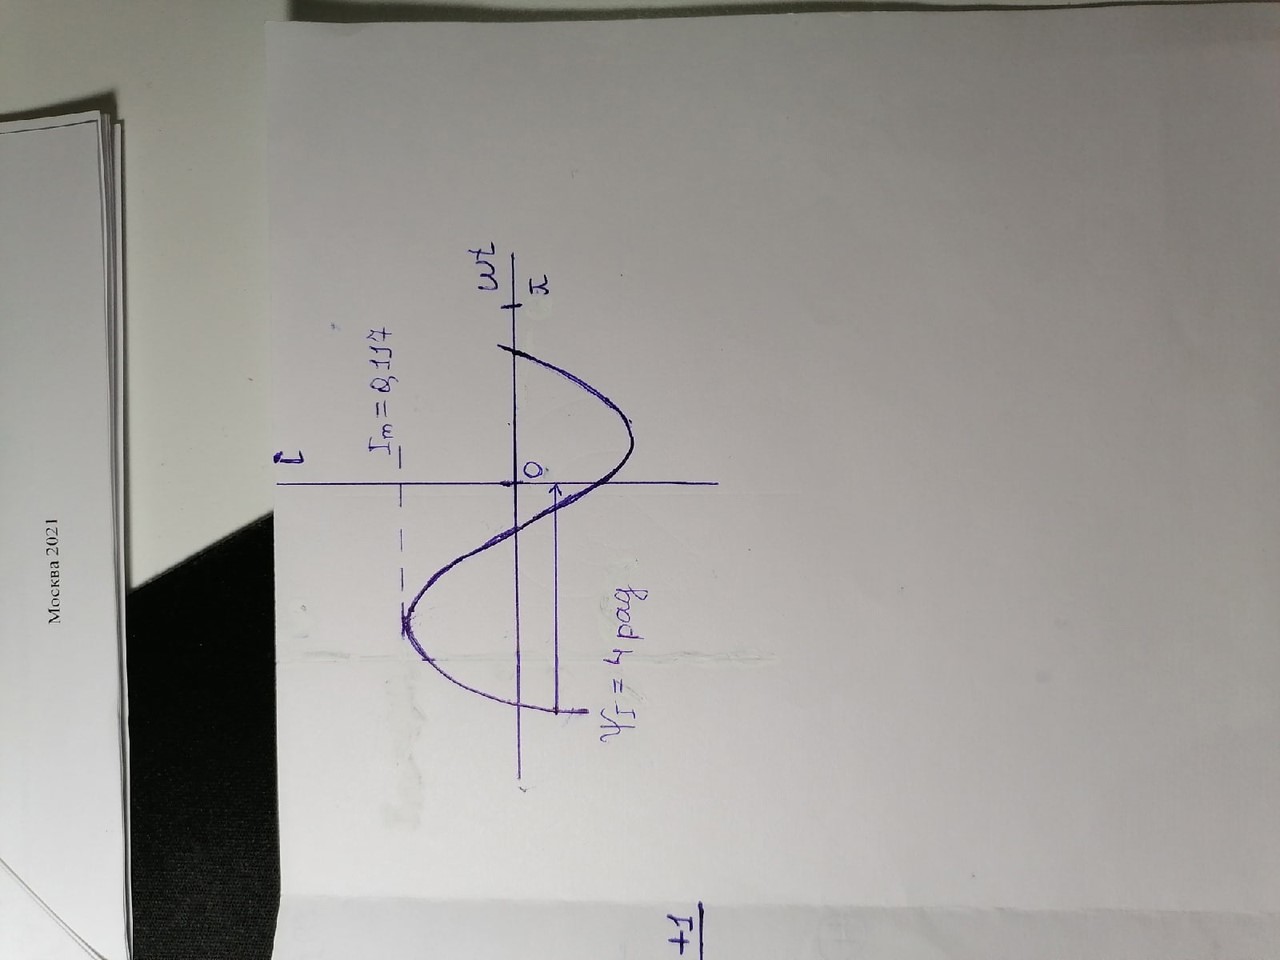 Москва 2021
i
Im = 0,117
ωt
π
0
ΨI = 4 рад
+1